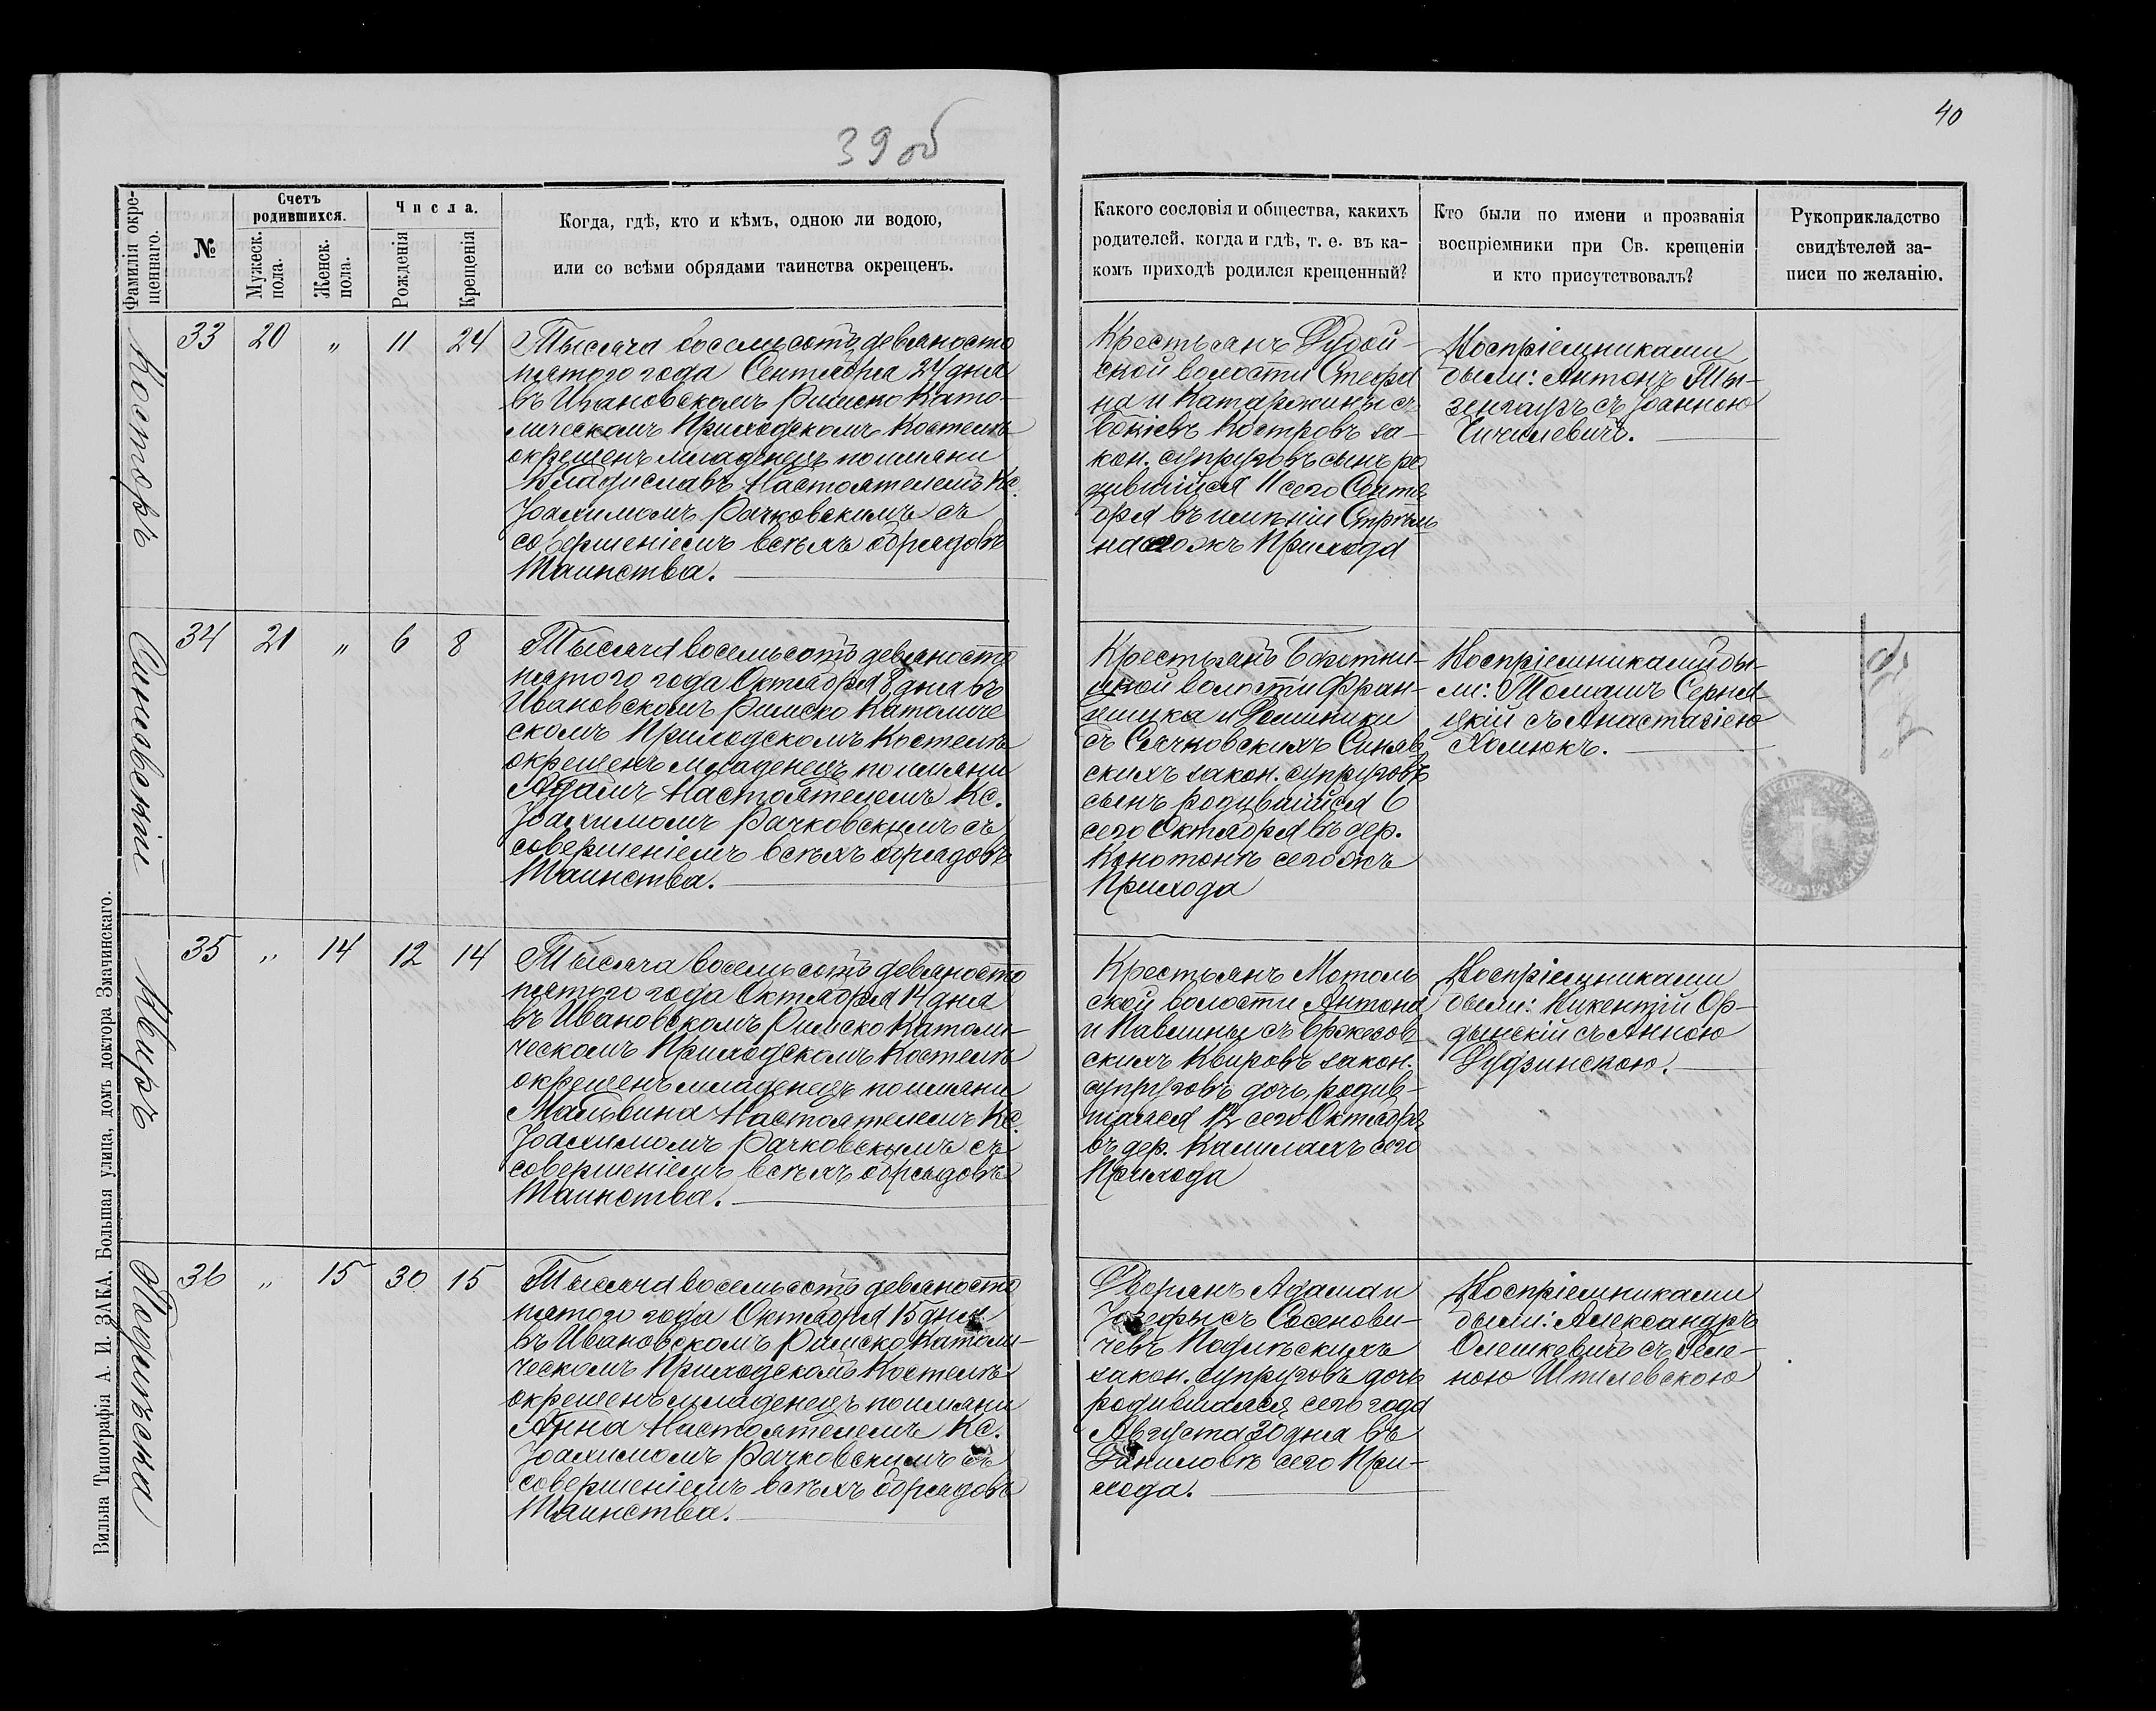 39 об
40
Фамилія окре-
щеннаго.
№
Счетъ
родившихся.
Мужеск.
пола.
Женск.
пола.
Числа.
Рожденія
Крещенія
Когда, гдѣ, кто и кѣмъ, одною ли водою,
или со всѣми обрядами таинства окрещенъ.
Какого сословія и общества, какихъ
родителей, когда и гдѣ, т. е. въ ка-
комъ приходѣ родился крещенный?
Кто были по имени и прозванія
воспріемники при Св. крещеніи
и кто присутствовалъ?
Рукоприкладство
свидѣтелей за-
писи по желанію.
Костровъ
33 20 „ 11 24
Тысяча восемьсотъ девяносто
пятого года Сентября 24 дня
въ Ивановскомъ Римско Като-
лическомъ Приходскомъ Костелѣ
окрещенъ младенецъ по имяни
Владиславъ Настоятелемъ Кс.
Іоахимомъ Рачковскимъ съ
совершеніемъ всѣхъ обрядовъ
Таинства.
Крестьянъ
ской волости Стефа
на и Катаржины съ
Костровъ за-
кон. супруговъ сынъ ро
дившійся 11 сего Сентя
бря въ имѣніи
Прихода
Воспріемниками
были: Антонъ
съ Іоанною
Синявскій
34 21 „ 6 8
Тысяча восемьсотъ девяносто
пятого года Октября 8 дня въ
Ивановскомъ Римско Католиче
скомъ Приходскомъ Костелѣ
окрещенъ младенецъ по имяни
Адамъ Настоятелемъ Кс.
Іоахимомъ Рачковскимъ съ
совершеніемъ всѣхъ обрядовъ
Таинства.
Крестьянъ
волости Фран-
цишка и Доминики
съ Сачковскихъ Синяв
скихъ закон. супруговъ
сынъ родившійся 6
сего Октября въ дер.
сегожъ
Прихода
Воспріемниками бы-
ли: Томашъ
съ Анастазіею
Хомюкъ.
Квиръ
35 „ 14 12 14
Тысяча восемьсотъ девяносто
пятого года Октября 14 дня
въ Ивановскомъ Римско Католи-
ческомъ Приходскомъ Костелѣ
окрещенъ младенецъ по имяни
Мальвина Настоятелемъ Кс.
Іоахимомъ Рачковскимъ съ
совершеніемъ всѣхъ обрядовъ
Таинства.
Крестьянъ Мотоль
ской волости Антона
и Павлины съ Бржезов
скихъ Квировъ закон.
супруговъ дочь родив-
шаяся 12 сего Октября
въ дер. Калилахъ сего
Прихода
Воспріемниками
были: Викентій Ор-
дынскій съ Анною
Дудзинскою.
Подлѣска
36 „ 15 30 15
Тысяча восемьсотъ девяносто
пятого года Октября 15 дня
въ Ивановскомъ Римско Католи-
ческомъ Приходскомъ Костелѣ
окрещенъ младенецъ по имяни
Анна Настоятелемъ Кс.
Іоахимомъ Рачковскимъ съ
совершеніемъ всѣхъ обрядовъ
Таинства.
Дворянъ Адама и
Іозефы съ Сосенови-
чевъ Подлѣскихъ
закон. супруговъ дочь
родившаяся сего года
Августа 30 дня въ
Даниловѣ сего При-
хода.
Воспріемниками
были: Александръ
Олешкевичъ съ Геле-
ною
Вильна Типографія А. И. ЗАКА, Большая улица, домъ доктора Змачинскаго.